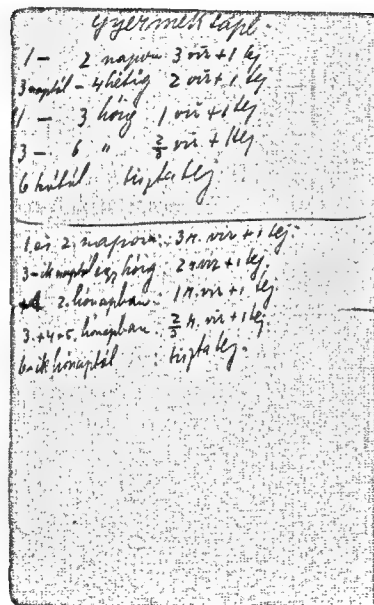 Gyermektápl.
1 - 2 napon 3 víz + 1 tej
3 naptól - 4 hétig 2 víz + 1 tej
1 - 3 hóig 1 víz + 1 tej
3 - 6 " 2/3 víz + 1 tej
6 hótól tiszta tej
1 és 2. napon: 3 r. víz + 1 tej.
3-ik naptól egy hóig: 2 r. víz + 1 tej.
2. hónapban: 1 r. víz + 1 tej.
3. + 4 + 5. hónapban: 2/3 r. víz + 1 tej.
6-ik hónaptól: tiszta tej.